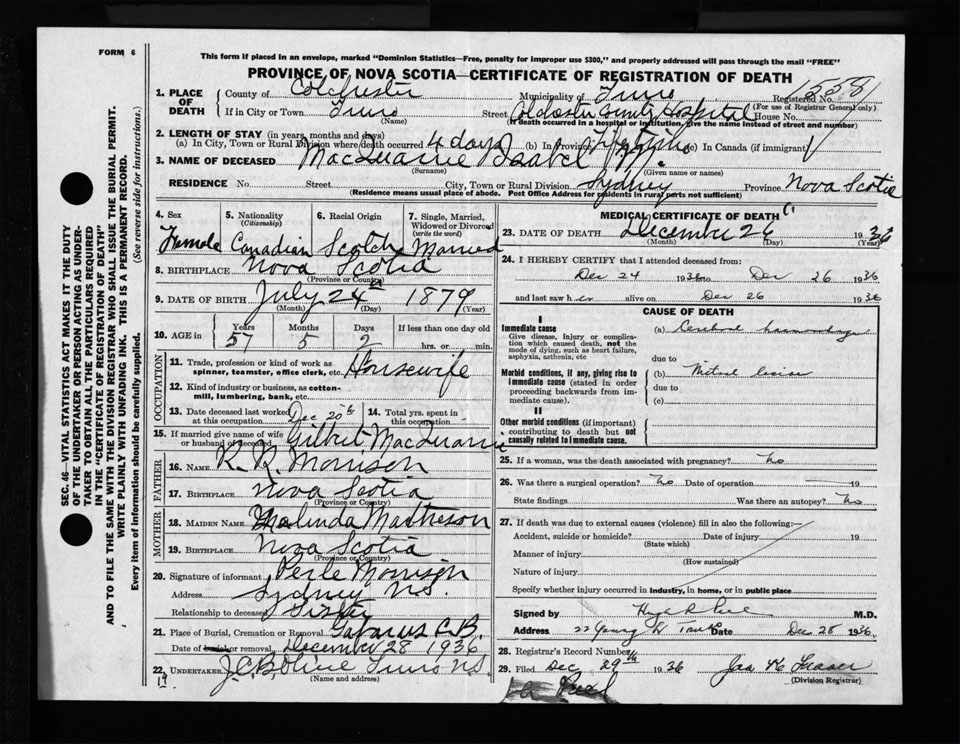 FORM 6
This form if placed in an envelope, marked "Dominion Statistics—Free, penalty for improper use $300," and properly addressed will pass through the mail "FREE"
PROVINCE OF NOVA SCOTIA—CERTIFICATE OF REGISTRATION OF DEATH
SEC. 46—VITAL STATISTICS ACT MAKES IT THE DUTY
OF THE UNDERTAKER OR PERSON ACTING AS UNDER-
TAKER TO OBTAIN ALL THE PARTICULARS REQUIRED
IN THE "CERTIFICATE OF REGISTRATION OF DEATH"
AND TO FILE THE SAME WITH THE DIVISION REGISTRAR WHO SHALL ISSUE THE BURIAL PERMIT.
WRITE PLAINLY WITH UNFADING INK. THIS IS A PERMANENT RECORD.
Every item of information should be carefully supplied. (See reverse side for instructions.)
1. PLACE OF DEATH
County of Colchester Municipality of Truro Registered No.
(For use of Registrar General only)
If in City or Town Truro Street Colchester County Hospital House No.
(Name) (If death occurred in a hospital or institution, give the name instead of street and number)
2. LENGTH OF STAY (in years, months and days)
(a) In City, Town or Rural Division where death occurred 4 days (b) In Province Lifetime (c) In Canada (if immigrant)
3. NAME OF DECEASED MacQuarrie Isabel M.
(Surname) (Given name or names)
RESIDENCE No. Street City, Town or Rural Division Sydney Province Nova Scotia
(Residence means usual place of abode. Post Office Address for residents in rural parts not sufficient)
4. Sex 5. Nationality (Citizenship) 6. Racial Origin 7. Single, Married, Widowed or Divorced (write the word)
Female Canadian Scotch Married
8. BIRTHPLACE Nova Scotia
(Province or Country)
9. DATE OF BIRTH July 24th 1879
(Month) (Day) (Year)
10. AGE in Years Months Days If less than one day old
57 5 2 hrs. or min.
OCCUPATION
11. Trade, profession or kind of work as spinner, teamster, office clerk, etc. Housewife
12. Kind of industry or business, as cotton-mill, lumbering, bank, etc.
13. Date deceased last worked at this occupation Dec 20th 14. Total yrs. spent in this occupation
15. If married give name of wife or husband of deceased Gilbert MacQuarrie
FATHER
16. NAME R. R. Morrison
17. BIRTHPLACE Nova Scotia
(Province or Country)
MOTHER
18. MAIDEN NAME Malinda Matheson
19. BIRTHPLACE Nova Scotia
(Province or Country)
20. Signature of informant Perle Morrison
Address Sydney N.S.
Relationship to deceased Sister
21. Place of Burial, Cremation or Removal Gabarus C.B.
Date of burial or removal December 28 1936
22. UNDERTAKER Truro N.S.
(Name and address)
19
MEDICAL CERTIFICATE OF DEATH
23. DATE OF DEATH December 26 1936
(Month) (Day) (Year)
24. I HEREBY CERTIFY that I attended deceased from:
Dec 24 1936 to Dec 26 1936
and last saw her alive on Dec 26 1936
CAUSE OF DEATH
I
Immediate cause
Give disease, injury or complication which caused death, not the mode of dying, such as heart failure, asphyxia, asthenia, etc
(a) Cerebral haemorrhage
due to
Morbid conditions, if any, giving rise to immediate cause (stated in order proceeding backwards from immediate cause).
(b) Mitral lesion
due to
(c)
II
Other morbid conditions (if important) contributing to death but not causally related to immediate cause.
25. If a woman, was the death associated with pregnancy? No
26. Was there a surgical operation? No Date of operation 19
State findings Was there an autopsy? No
27. If death was due to external causes (violence) fill in also the following:—
Accident, suicide or homicide? Date of injury 19
(State which)
Manner of injury
(How sustained)
Nature of injury
Specify whether injury occurred in industry, in home, or in public place
Signed by M.D.
Address 22 Young St Truro Date Dec 28 1936
28. Registrar's Record Number
29. Filed Dec 29th 1936 Jas Fraser
(Division Registrar)